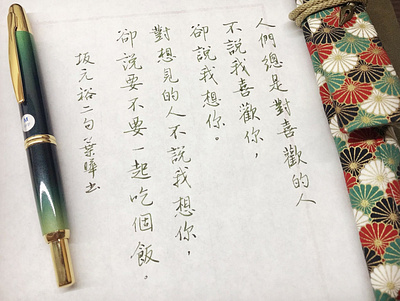 人們總是對喜歡的人
不說我喜歡你，
卻說我想你。
對想見的人不說我想你，
卻說要不要一起吃個飯。
坂元裕二句 葉曄書